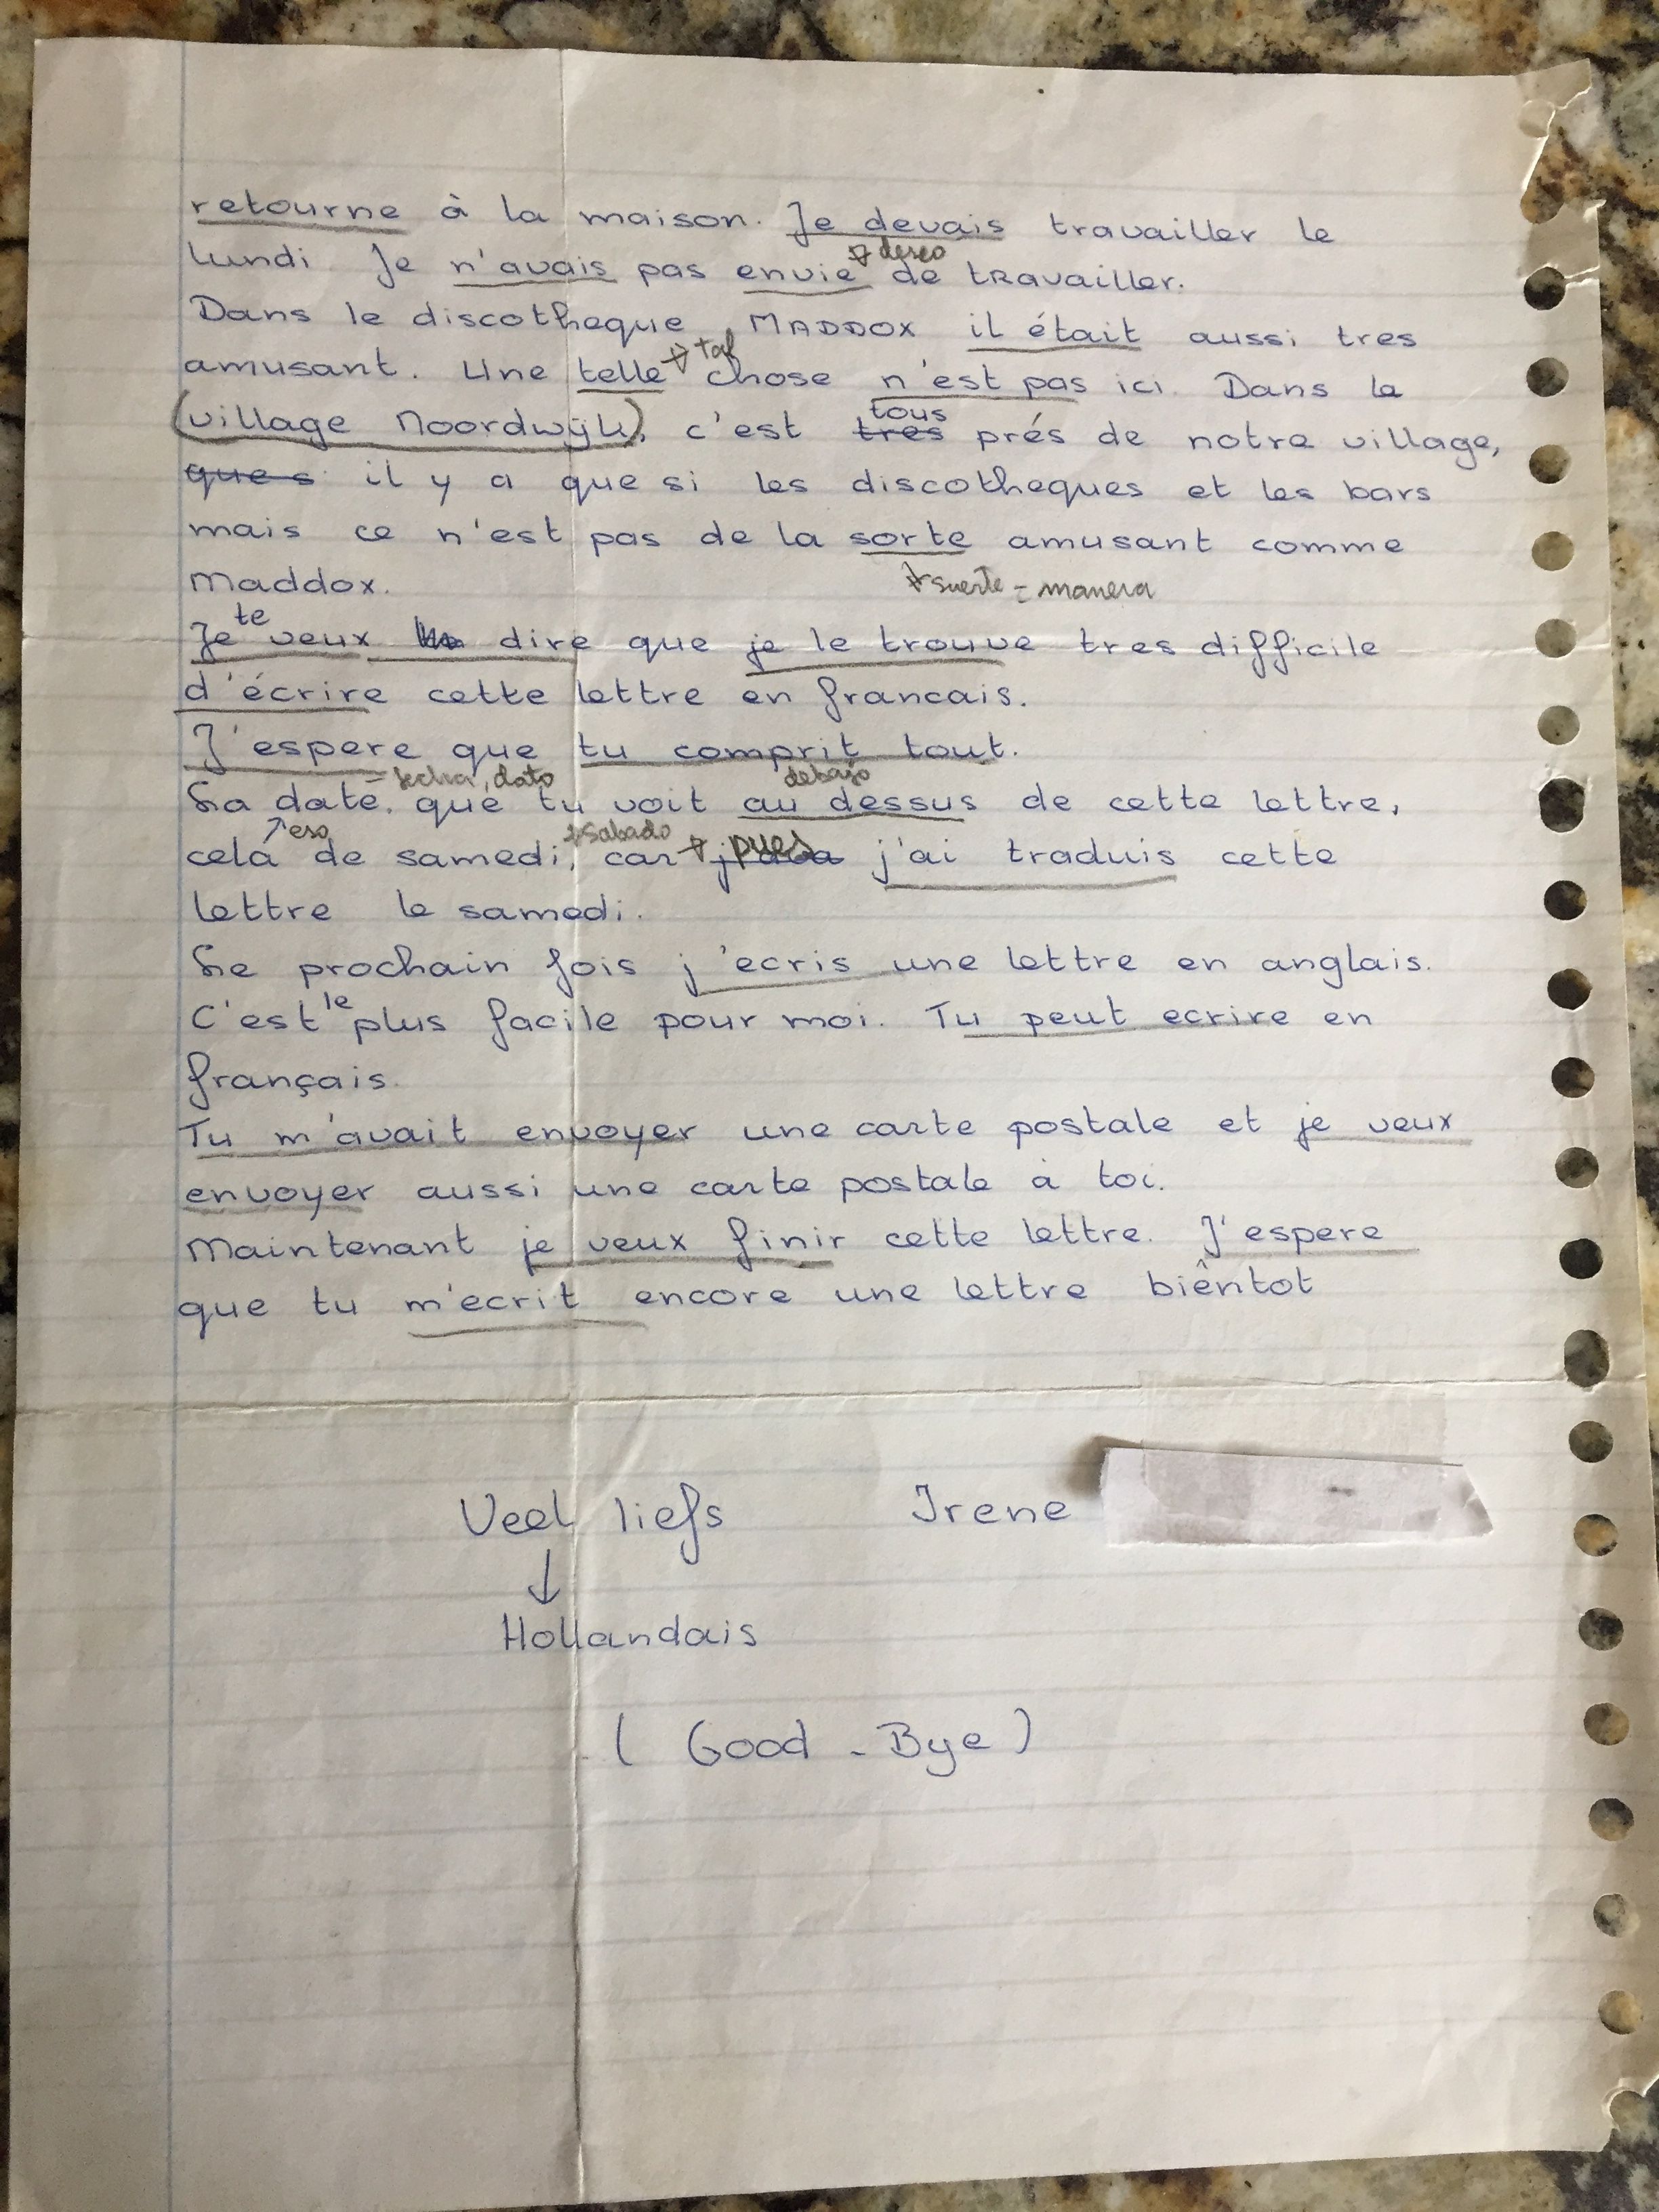 retourne à la maison. Je devais travailler le
→ deseo
lundi. Je n'avais pas envie de travailler.
Dans le discotheque MADDOX il était aussi tres
→ tal
amusant. Une telle chose n'est pas ici. Dans le
tous
(village Noordwijk), c'est tres prés de notre village,
que s il y a que si les discotheques et les bars
mais ce n'est pas de la sorte amusant comme
→ suerte = manera
Maddox.
te
Je veux dire que je le trouve tres difficile
d'écrire cette lettre en francais.
J'espere que tu comprit tout.
= fecha, dato debajo
La date, que tu voit au dessus de cette lettre,
↗ eso → Sabado → pues
celà de samedi, car j'ai traduis cette
lettre le samedi.
Le prochain fois j'ecris une lettre en anglais.
le
C'est plus facile pour moi. Tu peut ecrire en
français.
Tu m'avait envoyer une carte postale et je veux
envoyer aussi une carte postale à toi.
Maintenant je veux finir cette lettre. J'espere
que tu m'ecrit encore une lettre biêntot
Veel liefs Irene
↓
Hollandais
( Good - Bye )